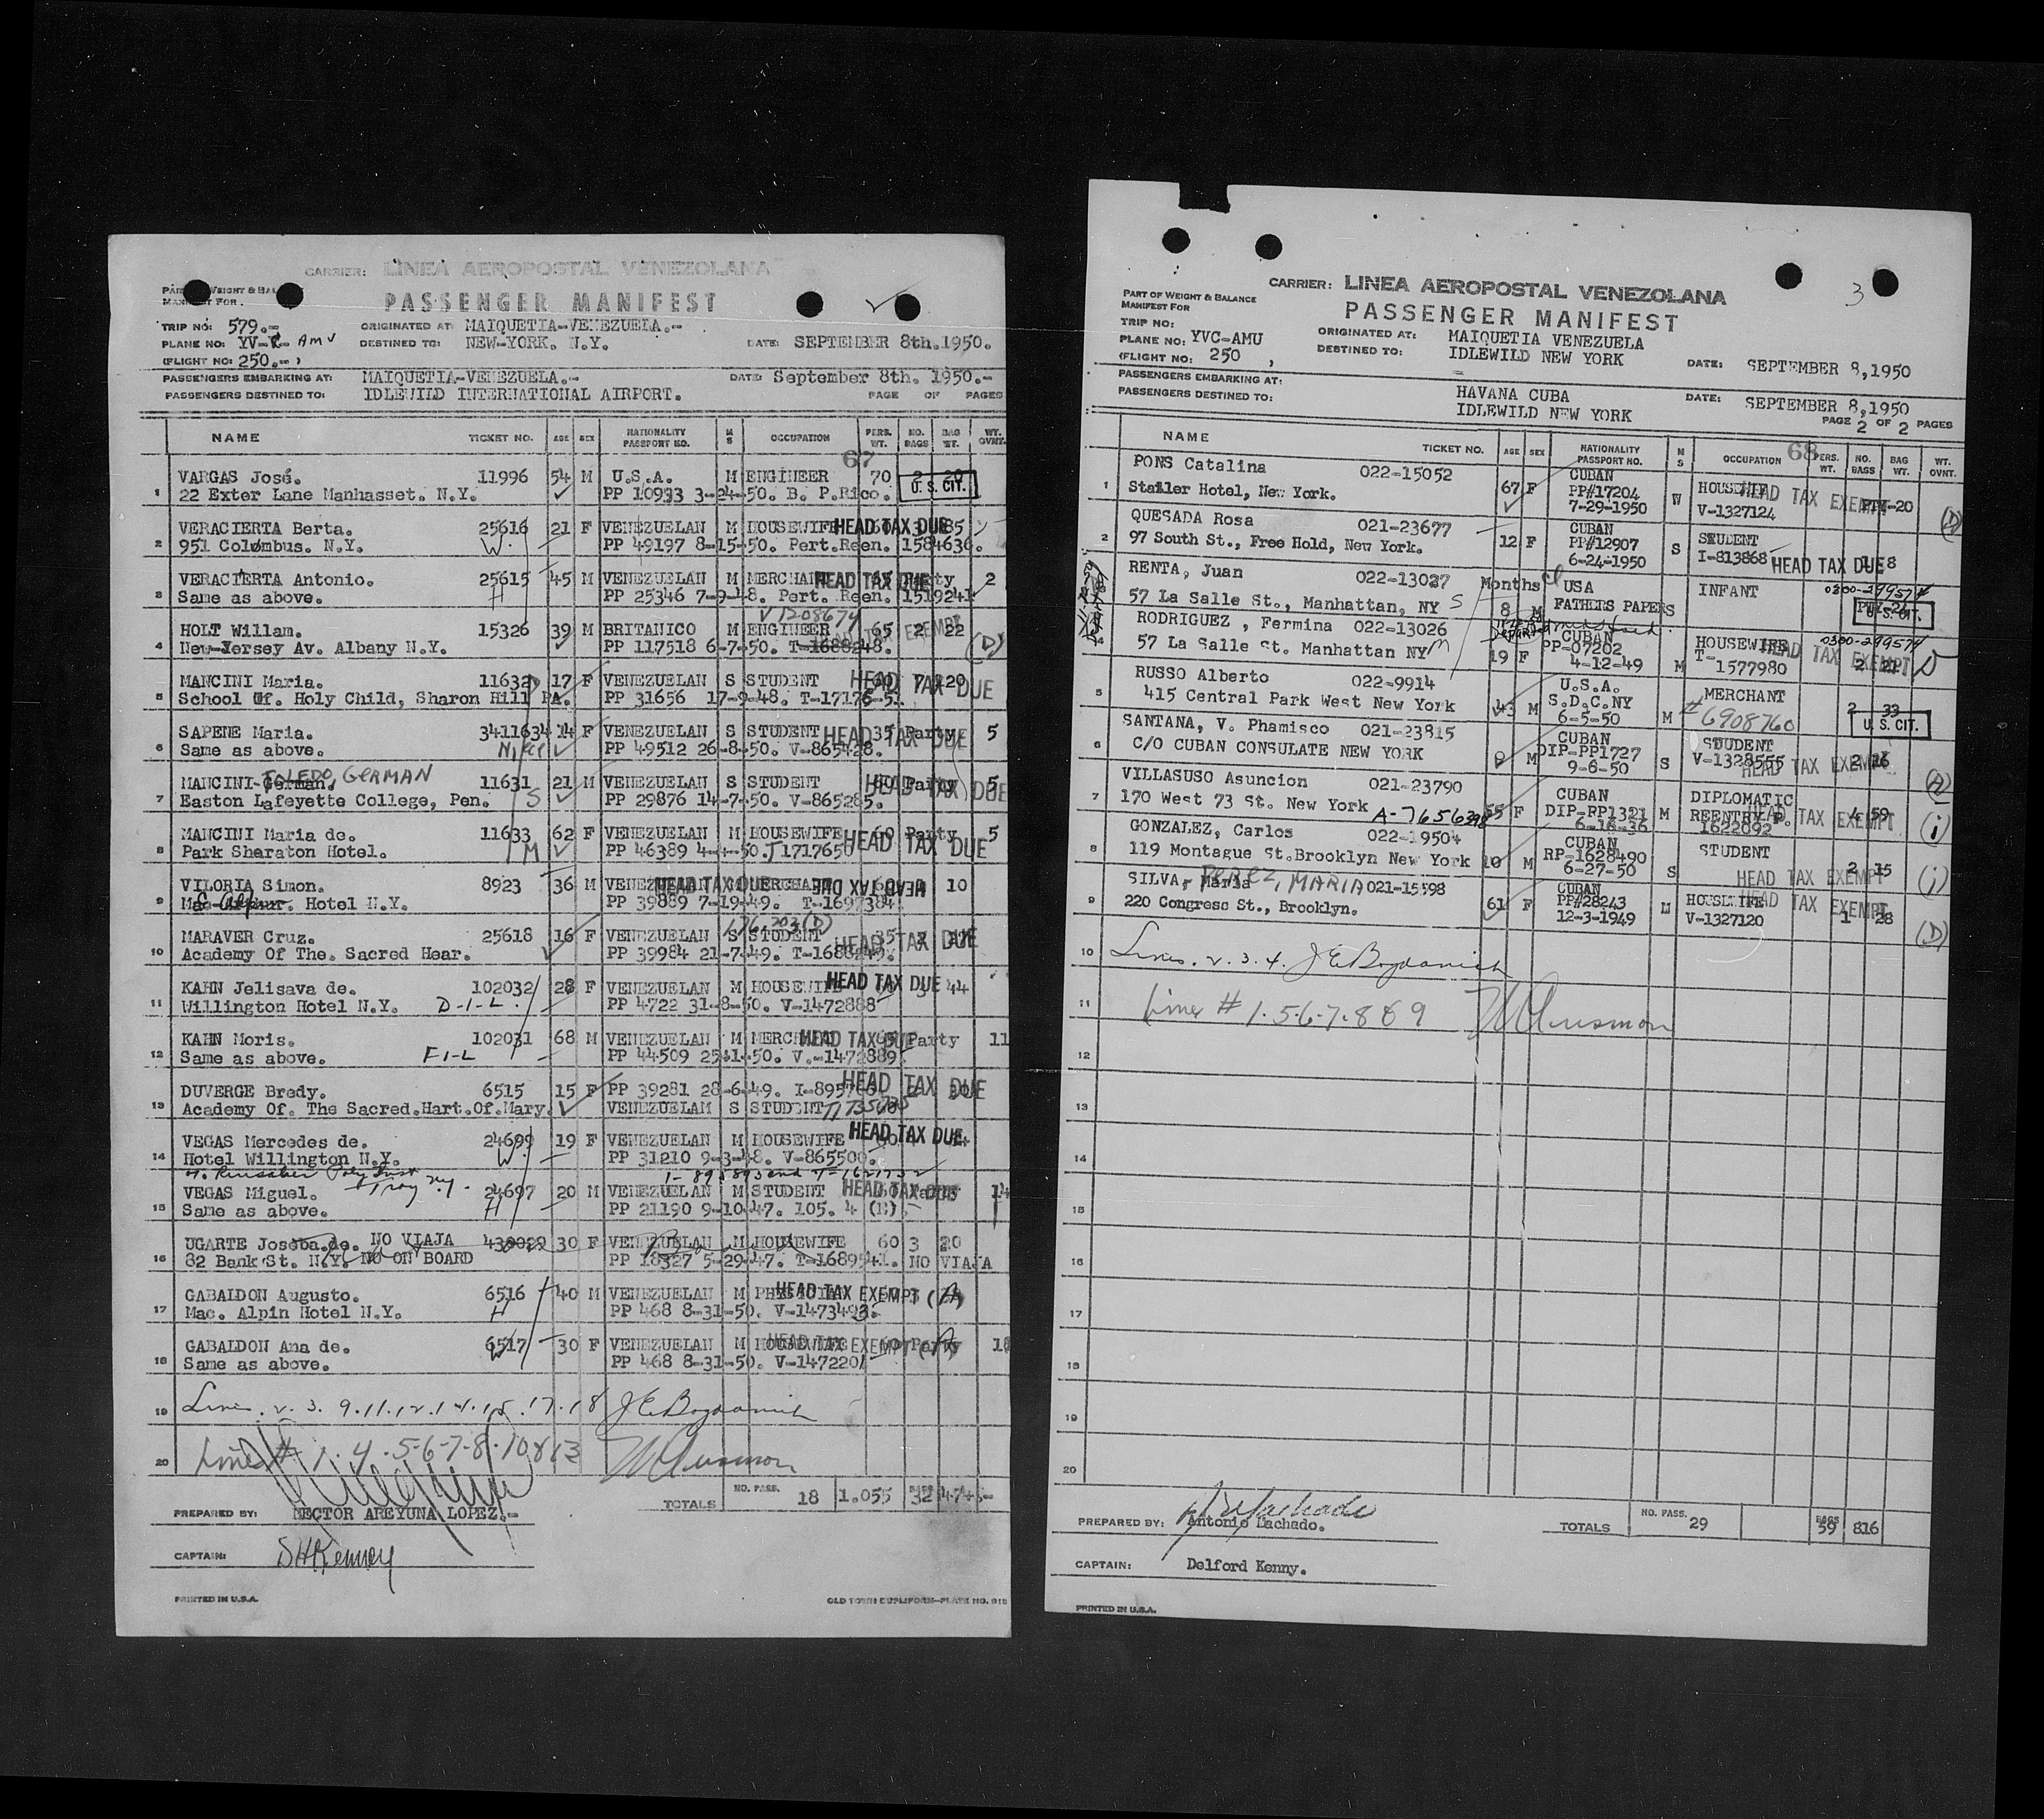 CARRIER: LINEA AEROPOSTAL VENEZOLANA
PASSENGER MANIFEST
TRIP NO: 579.-
ORIGINATED AT: MAIQUETIA-VENEZUELA.-
PLANE NO: YV-C- AMU
DESTINED TO: NEW-YORK. N.Y.
DATE: SEPTEMBER 8th.1950.
(FLIGHT NO: 250.- )
PASSENGERS EMBARKING AT: MAIQUETIA-VENEZUELA.-
DATE: September 8th. 1950.-
PASSENGERS DESTINED TO: IDLEWILD INTERNATIONAL AIRPORT.
PAGE OF PAGES
NAME TICKET NO. AGE SEX NATIONALITY PASSPORT NO. M S OCCUPATION PERS. WT. NO. BAGS BAG WT. WT. OVNT.
67
1 VARGAS José. 11996 54 M U.S.A. M ENGINEER 70 2 20
22 Exter Lane Manhasset. N.Y. PP 10933 3-24-50. B. P.Rico. U. S. CIT.
2 VERACIERTA Berta. 25616 21 F VENEZUELAN M HOUSEWIFE HEAD TAX DUE 85
951 Columbus. N.Y. W. PP 49197 8-15-50. Pert.Reen. 1584636.
3 VERACIERTA Antonio. 25615 45 M VENEZUELAN M MERCHANT HEAD TAX DUE Party 2
Same as above. H PP 25346 7-9-48. Pert. Reen. 1519241
V1208674
4 HOLT Willam. 15326 39 M BRITANICO M ENGINEER 65 2 22
New-Yersey Av. Albany N.Y. PP 117518 6-7-50. T-1688248. (D)
5 MANCINI Maria. 11632 17 F VENEZUELAN S STUDENT 60 7 120 HEAD TAX DUE
School Of. Holy Child, Sharon Hill PA. PP 31656 17-9-48. T-17176-51
6 SAPENE Maria. 3411634 14 F VENEZUELAN S STUDENT 35 Party 5 HEAD TAX DUE
Same as above. Niece PP 49512 26-8-50. V-865428.
7 MANCINI German. TOLEDO, GERMAN 11631 21 M VENEZUELAN S STUDENT Party 5 HEAD TAX DUE
Easton Lafeyette College, Pen. S PP 29876 14-7-50. V-865285.
8 MANCINI Maria de. 11633 62 F VENEZUELAN M HOUSEWIFE 60 Party 5 HEAD TAX DUE
Park Sharaton Hotel. M PP 46389 4-4-50. T1717650
9 VILORIA Simon. 8923 36 M VENEZUELAN M MERCHANT HEAD TAX DUE HEAD TAX DUE 10
Hotel N.Y. PP 39889 7-19-49. T-1697384
176,203(D)
10 MARAVER Cruz. 25618 16 F VENEZUELAN S STUDENT 35 HEAD TAX DUE
Academy Of The. Sacred Hear. PP 39984 21-7-49. T-1688249.
11 KAHN Jelisava de. 102032 28 F VENEZUELAN M HOUSEWIFE HEAD TAX DUE 3 44
Willington Hotel N.Y. D-I-L. PP 4722 31-8-50. V-1472888
12 KAHN Moris. 102031 68 M VENEZUELAN M MERCHANT HEAD TAX DUE Party 11
Same as above. F-I-L PP 44509 25-1-50. V.-1472889.
13 DUVERGE Bredy. 6515 15 F PP 39281 28-6-49. HEAD TAX DUE
Academy Of. The Sacred.Hart.Of.Mary. VENEZUELAM S STUDENT
14 VEGAS Mercedes de. 24699 19 F VENEZUELAN M HOUSEWIFE HEAD TAX DUE
Hotel Willington N.Y. W. PP 31210 9-3-48. V-865500.
Troy NY.
15 VEGAS Miguel. 24697 20 M VENEZUELAN M STUDENT HEAD TAX DUE 14
Same as above. H PP 21190 9-10-47. 105. 4 (E).
16 UGARTE Joseba.de. NO VIAJA 430029 30 F VENEZUELAN M HOUSEWIFE 60 3 20
82 Bank St. N.Y. NO ON BOARD PP 18327 5-29-47. T-1689541. NO VIAJA
17 GABALDON Augusto. 6516 40 M VENEZUELAN M HEAD TAX EXEMPT (A)
Mac. Alpin Hotel N.Y. H PP 468 8-31-50. V-1473493.
18 GABALDON Ana de. 6517 30 F VENEZUELAN M HOUSEWIFE HEAD TAX EXEMPT Party 18
Same as above. W PP 468 8-31-50. V-147220
19 Lines. 2. 3. 9.11.12.14.15.17.18 J E Bogdanich
20 Lines # 1.4.5-6-7-8-10&13
TOTALS NO. PASS. 18 1.055 BAGS 32 474
PREPARED BY: NECTOR AREYUNA LOPEZ.-
CAPTAIN: D H Kenney
PRINTED IN U.S.A.
OLD TOWN DUPLIFORM-PLATE NO. 918
3
CARRIER: LINEA AEROPOSTAL VENEZOLANA
PART OF WEIGHT & BALANCE
MANIFEST FOR
PASSENGER MANIFEST
TRIP NO:
ORIGINATED AT: MAIQUETIA VENEZUELA
PLANE NO: YVC-AMU
DESTINED TO: IDLEWILD NEW YORK
DATE: SEPTEMBER 8,1950
(FLIGHT NO: 250 ,
PASSENGERS EMBARKING AT: HAVANA CUBA
DATE: SEPTEMBER 8,1950
PASSENGERS DESTINED TO: IDLEWILD NEW YORK
PAGE 2 OF 2 PAGES
NAME TICKET NO. AGE SEX NATIONALITY PASSPORT NO. M S OCCUPATION PERS. WT. NO. BAGS BAG WT. WT. OVNT.
68
1 PONS Catalina 022-15052 67 F CUBAN PP#17204 7-29-1950 W HOUSEWIFE V-1327124 HEAD TAX EXEMPT 20 (D)
Statler Hotel, New York.
2 QUESADA Rosa 021-23677 12 F CUBAN PP#12907 6-24-1950 S STUDENT I-813868 HEAD TAX DUE 8
97 South St., Free Hold, New York.
RENTA, Juan 022-13027 Months 8 M USA FATHERS PAPERS INFANT 0300-299574 U. S. CIT.
57 La Salle St., Manhattan, NY S
RODRIGUEZ , Fermina 022-13026 19 F CUBAN PP-07202 4-12-49 M HOUSEWIFE T-1577980 0300-299574 HEAD TAX EXEMPT 2 21 D
57 La Salle St. Manhattan NY M
5 RUSSO Alberto 022-9914 43 M U.S.A. S.D.C.NY 6-5-50 M MERCHANT #6908760 2 33 U. S. CIT.
415 Central Park West New York
6 SANTANA, V. Phamisco 021-23815 9 M CUBAN DIP-PP1727 9-6-50 S STUDENT V-1328555 HEAD TAX EXEMPT 2 16 (A)
C/O CUBAN CONSULATE NEW YORK
7 VILLASUSO Asuncion 021-23790 55 F CUBAN DIP-PP1321 6-16-36 M DIPLOMATIC REENTRY P. 1622092 HEAD TAX EXEMPT 4 59 (i)
170 West 73 St. New York A-7656398
8 GONZALEZ, Carlos 022-19504 10 M CUBAN RP-1628490 6-27-50 S STUDENT HEAD TAX EXEMPT 2 15 (i)
119 Montague St.Brooklyn New York
9 SILVA, Maria PEREZ, MARIA 021-15598 61 F CUBAN PP#28243 12-3-1949 HOUSEWIFE V-1327120 HEAD TAX EXEMPT 1 28 (D)
220 Congress St., Brooklyn.
10 Lines. 2. 3. 4. J E Bogdanich
11 Lines # 1.5-6-7.8&9
12
13
14
15
16
17
18
19
20
TOTALS NO. PASS. 29 BAGS 59 816
PREPARED BY: Antonio Machado.
CAPTAIN: Delford Kenny.
PRINTED IN U.S.A.